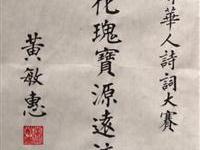 華人詩詞大賽
化瑰寶源遠
黃敏惠